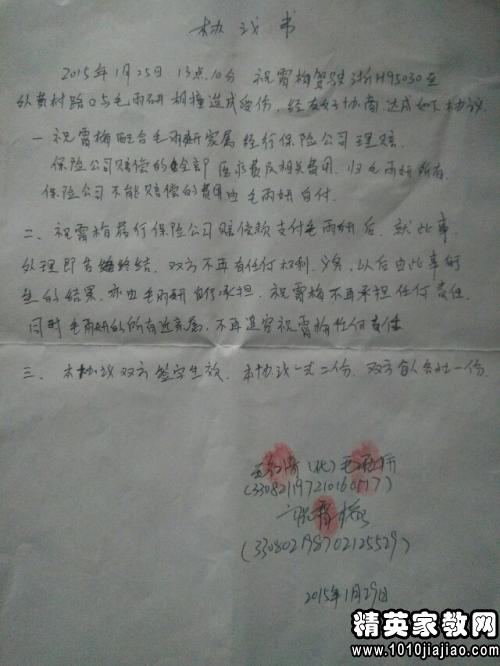 协议书
2015年1月25日13点10分 祝雪梅驾驶浙H95030至
路口与毛雨妍相撞造成受伤,经双方协商达成如下协议
一 祝雪梅配合毛雨妍家属经行保险公司理赔.
保险公司赔偿的全部医疗费及相关费用.归毛雨妍所有.
保险公司不能赔偿的费用由毛雨妍自付.
二、祝雪梅将保险公司赔偿款支付毛雨妍后.就此事
处理即告终结.双方不再有任何权利、义务,以后由此事
的结果,亦由毛雨妍自行承担.祝雪梅不再承担任何责任.
同时毛雨妍的所有近亲属,不再追究祝雪梅任何责任
三、本协议双方签字生效.本协议一式二份.双方各一份.
(代)毛雨妍
祝雪梅
(330802198702125529)
2015年1月29日
精英家教网
www.1010jiajiao.com